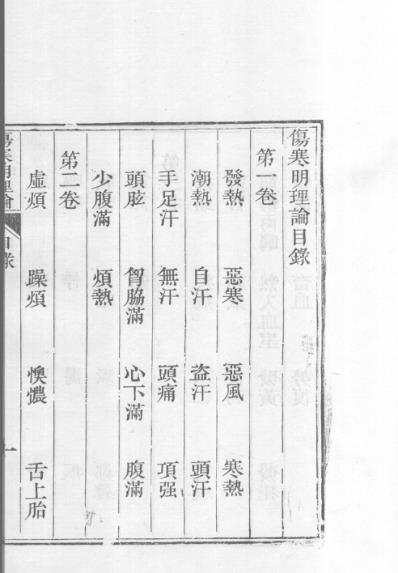 傷寒明理論目錄
第一卷
發熱 惡寒 惡風 寒熱
潮熱 自汗 盗汗 頭汗
手足汗 無汗 頭痛 項强
頭眩 胷脇滿 心下滿 腹滿
少腹滿 煩熱
第二卷
虛煩 躁煩 懊憹 舌上胎
傷寒明理論 目錄 一